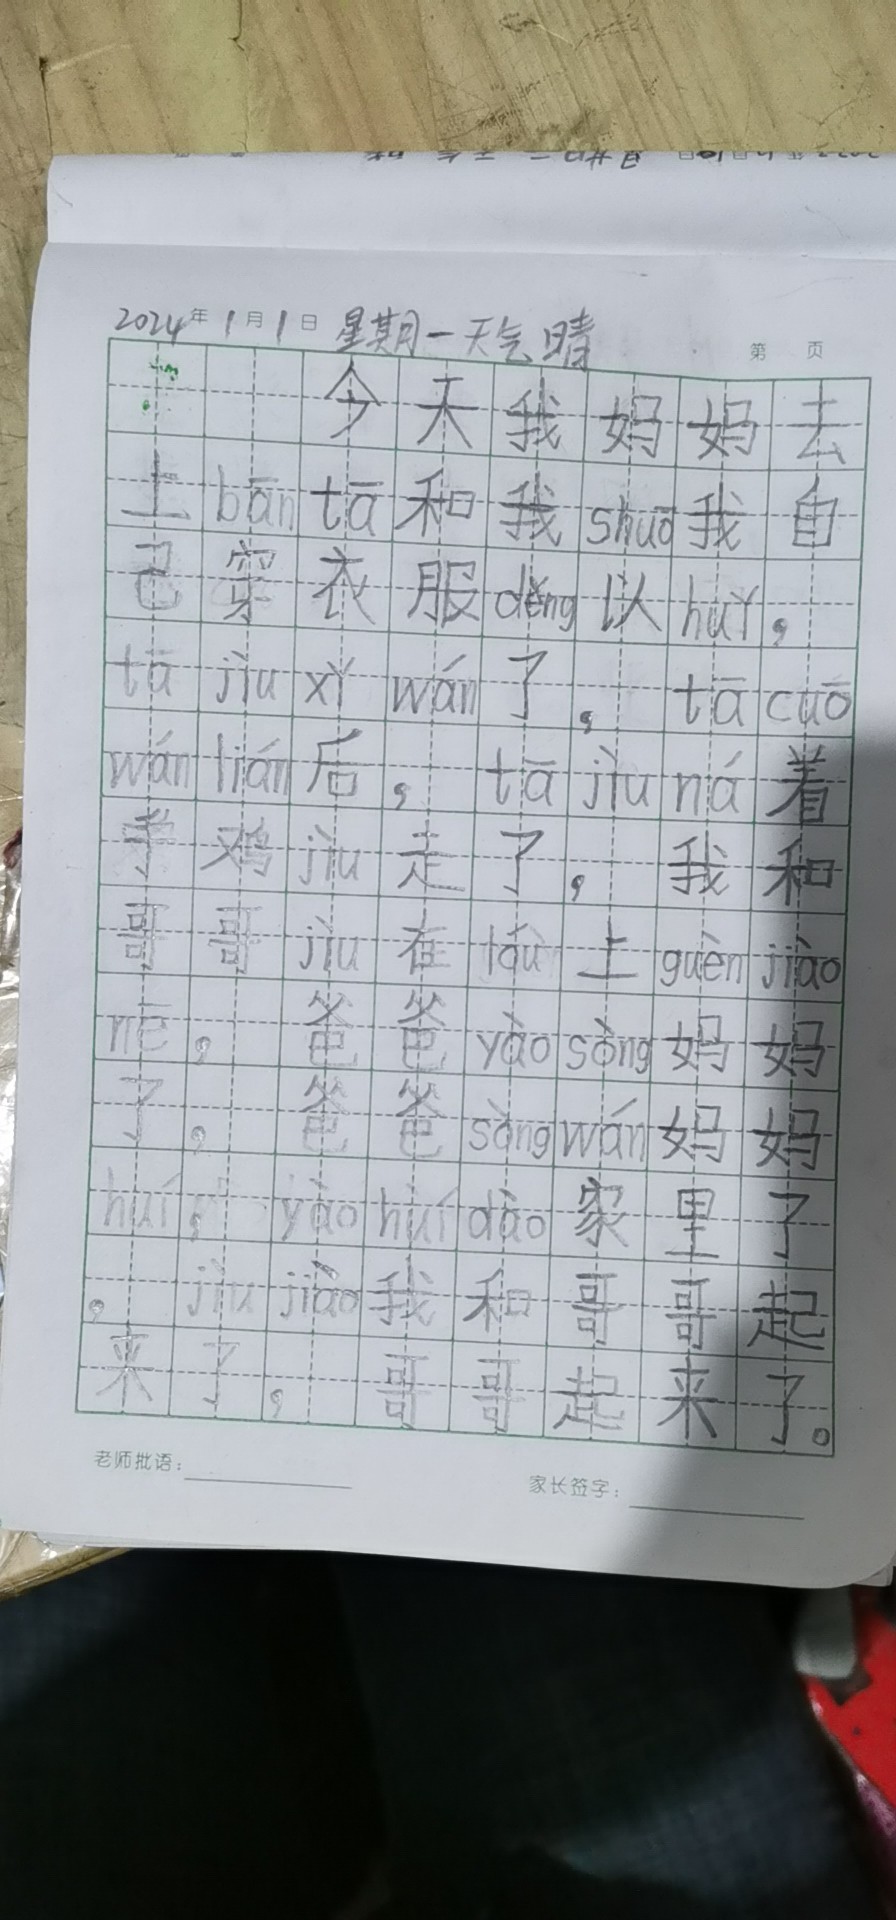 2024年1月1日 星期一天气晴
第 页
今天我妈妈去
上bān tā和我shuō我自
己穿衣服děng以huǐ，
tā jìu xǐ wán了，tā cuō
wán lián后，tā jìu ná着
手鸡jìu走了，我和
哥哥jìu在 上guèn jiào
nē，爸爸yào sòng妈妈
了，爸爸sòng wán妈妈
huí，yào huí dào家里了
，jìu jiào我和哥哥起
来了，哥哥起来了。
老师批语：
家长签字：